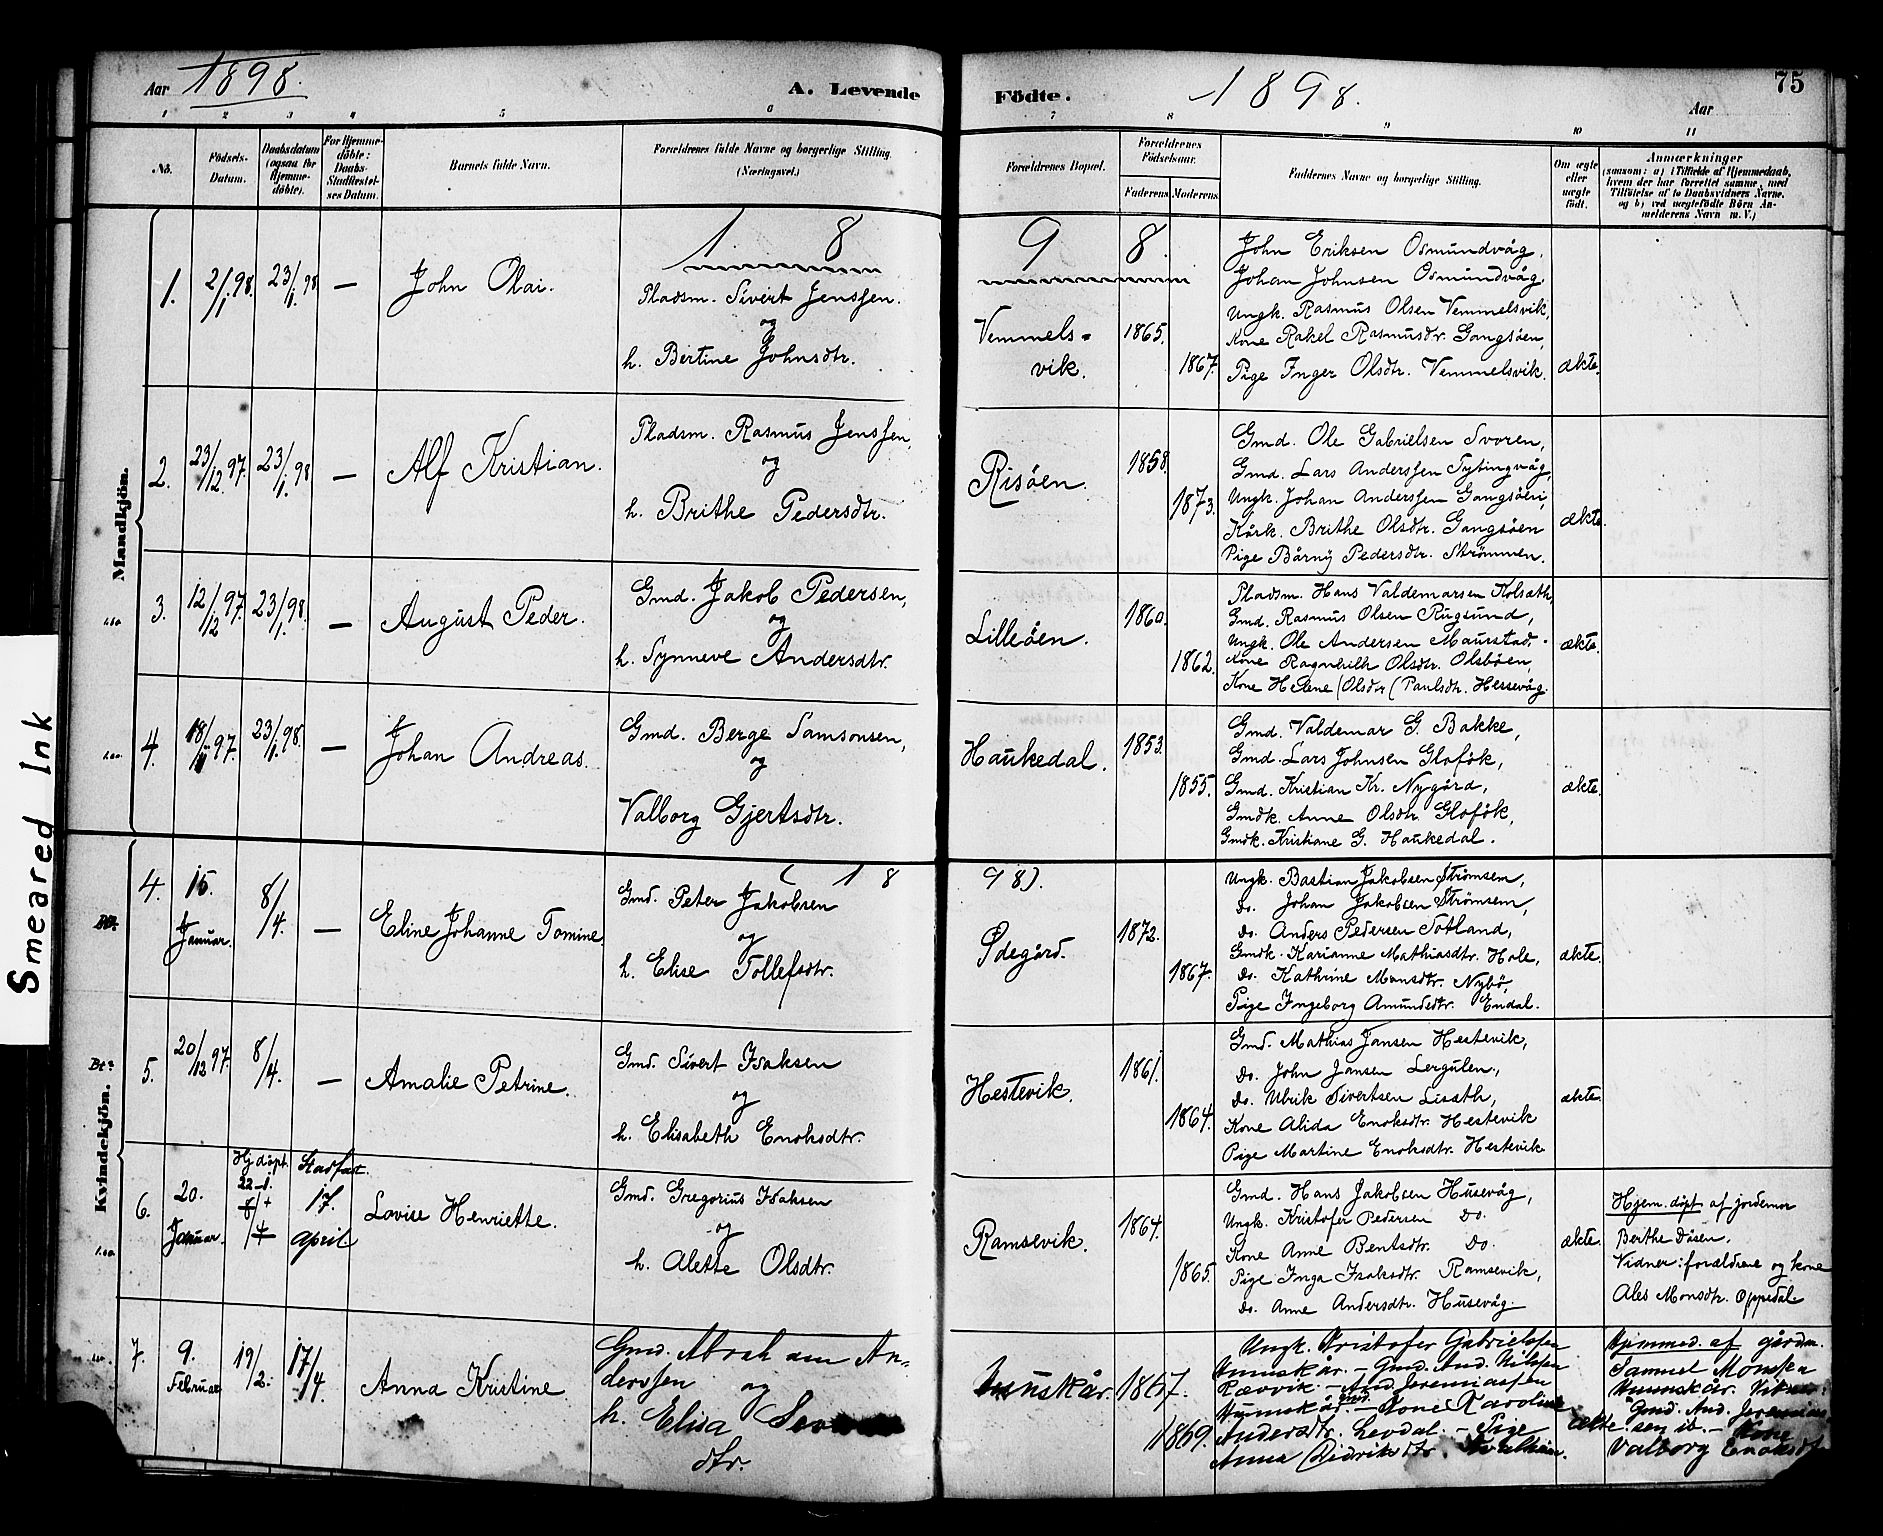 Aar 1898. A. Levende
Födte. 1898. Aar 75
1 2 3 4 5 6
7 8 9 10 11
No.
Födsels-
Datum.
Daabsdatum
(ogsaa for
Hjemme-
döbte).
For Hjemme-
döbte:
Daabs-
Stadfæstel-
ses Datum.
Barnets fulde Navn.
Forældrenes fulde Navne og borgerlige Stilling.
(Næringsvei.)
Forældrenes Bopæl.
Forældrenes
Födselsaar.
Faderens Moderens
Faddernes Navne og borgerlige Stilling.
Om ægte
eller
uægte
födt.
Anmærkninger
(saasom: a) i Tilfælde af Hjemmedaab,
hvem der har forrettet samme, med
Tilföielse af to Daabsvidners Navne.
og b) ved uægtefödte Börn An-
melderens Navn m. V.)
Mandkjön.
1 8
9 8.
1. 2/1.98. 23/1.98 — John Olai.
Pladsm. Sivert Jenssen.
og
h. Bertine Johnsdtr.
Vemmels=
vik.
1865.
1867.
John Eriksen Osmundvåg,
Johan Johnsen Osmundvåg
Ungk. Rasmus Olsen Vemmelsvik,
Kone Rakel Rasmusdr. Gangsöen,
Pige Inger Olsdtr. Vemmelsvik.
ækte.
2. 23/12.97. 23/1.98 — Alf Kristian.
Pladsm. Rasmus Jenssen,
og
h. Brithe Pedersdtr.
Risöen.
1858.
1873.
Gmd. Ole Gabrielsen Svoren,
Gmd. Lars Anderssen Tytingvåg,
Ungk. Johan Anderssen Gangsöen,
Kårk. Brithe Olsdtr. Gangsöen
Pige Bårny Pedersdtr. Strömmen.
ækte.
3. 12/12 97. 23/1.98. — August Peder.
Gmd. Jakob Pedersen,
og
h. Synneve Andersdtr.
Lilleöen.
1860.
1862.
Pladsm. Hans Valdemarsen Kolsæth,
Gmd. Rasmus Olsen Rugsund,
Ungk. Ole Andersen Maurstad.
Kone Ragnhilh Olsdtr. Olsböen,
Kone Helene (Olsdtr (Paulsdtr. Hessevåg.
ækte.
4. 18/11 97. 23/1.98. — Johan Andreas.
Gmd. Berge Samsonsen,
og
Valborg Gjertsdtr.
Haukedal.
1853.
1855.
Gmd. Valdemar G. Bakke,
Gmd. Lars Johnsen Glofök,
Gmd. Kristian Kr. Nygård,
Gmdk. Anne Olsdtr. Glofök,
Gmdk. Kristiane G. Haukedal.
ækte.
Kvindekjön.
( 1 8
9 8).
4. 15. Januar. 8/4. — Eline Johanne Tomine
Gmd. Peter Jakobsen
og
h. Elise Tollefsdtr.
Ødegård.
1872.
1867.
Ungk. Bastian Jakobsen Strömsem,
Do. Johan Jakobsen Strömsem,
Do. Anders Pedersen Totland,
Gmdk. Karianne Mathiasdtr. Hole,
Do. Kathrine Monsdtr. Nybö,
Pige Ingeborg Amundsdtr. Endal.
ækte.
5. 20/12 97. 8/4. — Amalie Petrine.
Gmd. Sivert Isaksen
og
h. Elisabeth Enoksdtr.
Hestevik.
1861.
1864.
Gmd. Mathias Jansen Hestevik,
Do. John Jansen Lergulen,
Do. Ulrik Sivertsen Lisæth,
Kone Alida Enoksdtr. Hestevik
Pige Martine Enoksdtr. Hestevik
ækte.
6. 20. Januar. Hj. döpt. 22-1. 8/4 Stadfæst. 17. april. Lovise Henriette.
Gmd. Gregorius Isaksen
og
h. Alette Olsdtr.
Ramsevik.
1864.
1865.
Gmd. Hans Jakobsen Husevåg,
Ungk. Kristofer Pedersen Do.
Kone Anne Bentsdtr. Do.
Pige Inga Isaksdtr. Ramsevik,
Do. Anne Andersdtr. Husevåg.
ækte.
Hjem. döpt af jordemor
Berthe Dösen.
Vidner: forældrene og kone
Ales Monsdtr. Oppedal.
7. 9. Februar 19/2. 17/4 Anna Kristine
Gmd. Abraham An-
derssen og
h. Elisa
dtr.
1867.
1869.
Ungk. Kristofer Gabrielssen
Gmd. And. Nilssen
Rævvik. — And. Jeremiassen
gmd. — Kone Karoline
Andersdtr. Levdal. — Pige
Anna Didriksdtr.
ækte.
Hjemmed. af gårdm.
Samuel Monsen
Gmd. And. Jeremias-
sen ib. — Kone
Valborg Enoksdtr
Smeared Ink